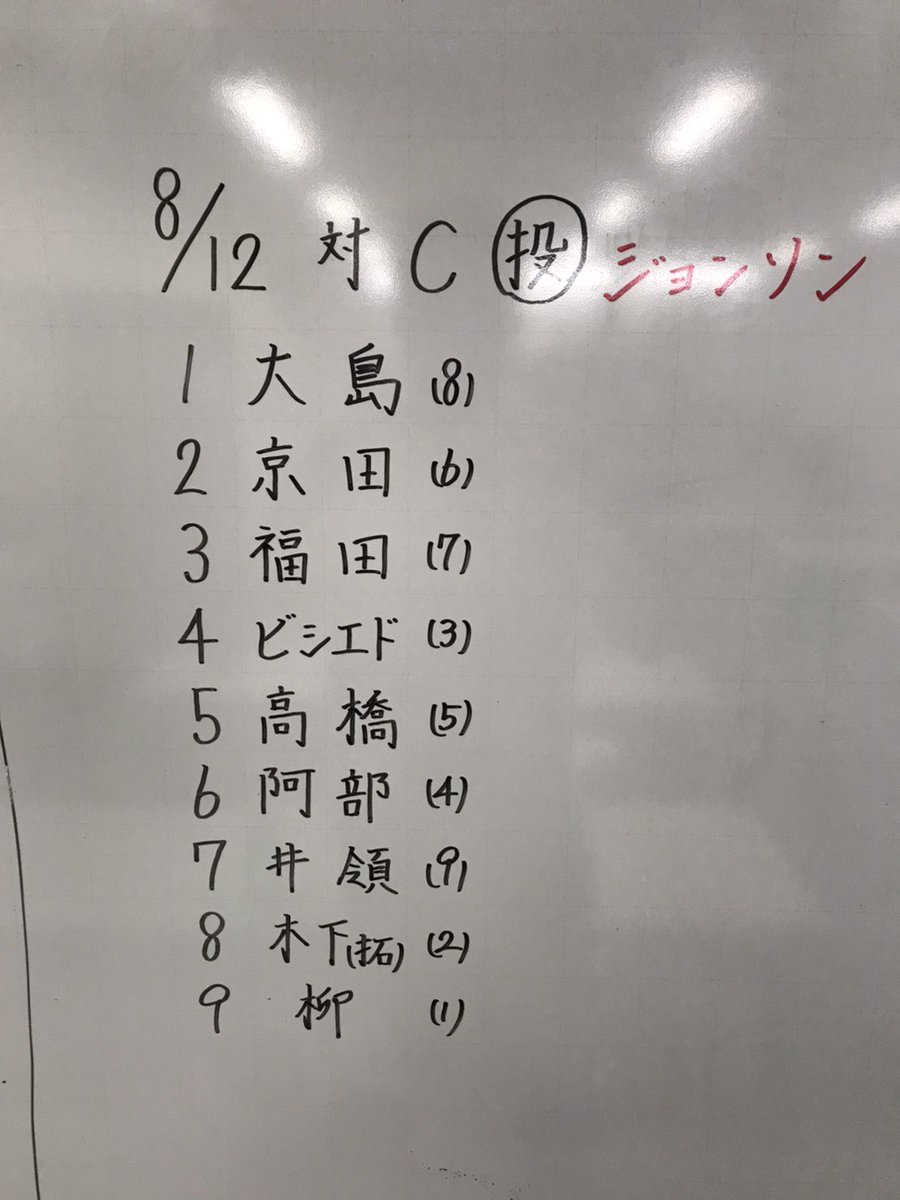 8/12 対 C 投 ジョンソン
1 大島 (8)
2 京田 (6)
3 福田 (7)
4 ビシエド (3)
5 高橋 (5)
6 阿部 (4)
7 井領 (9)
8 木下(拓) (2)
9 柳 (1)